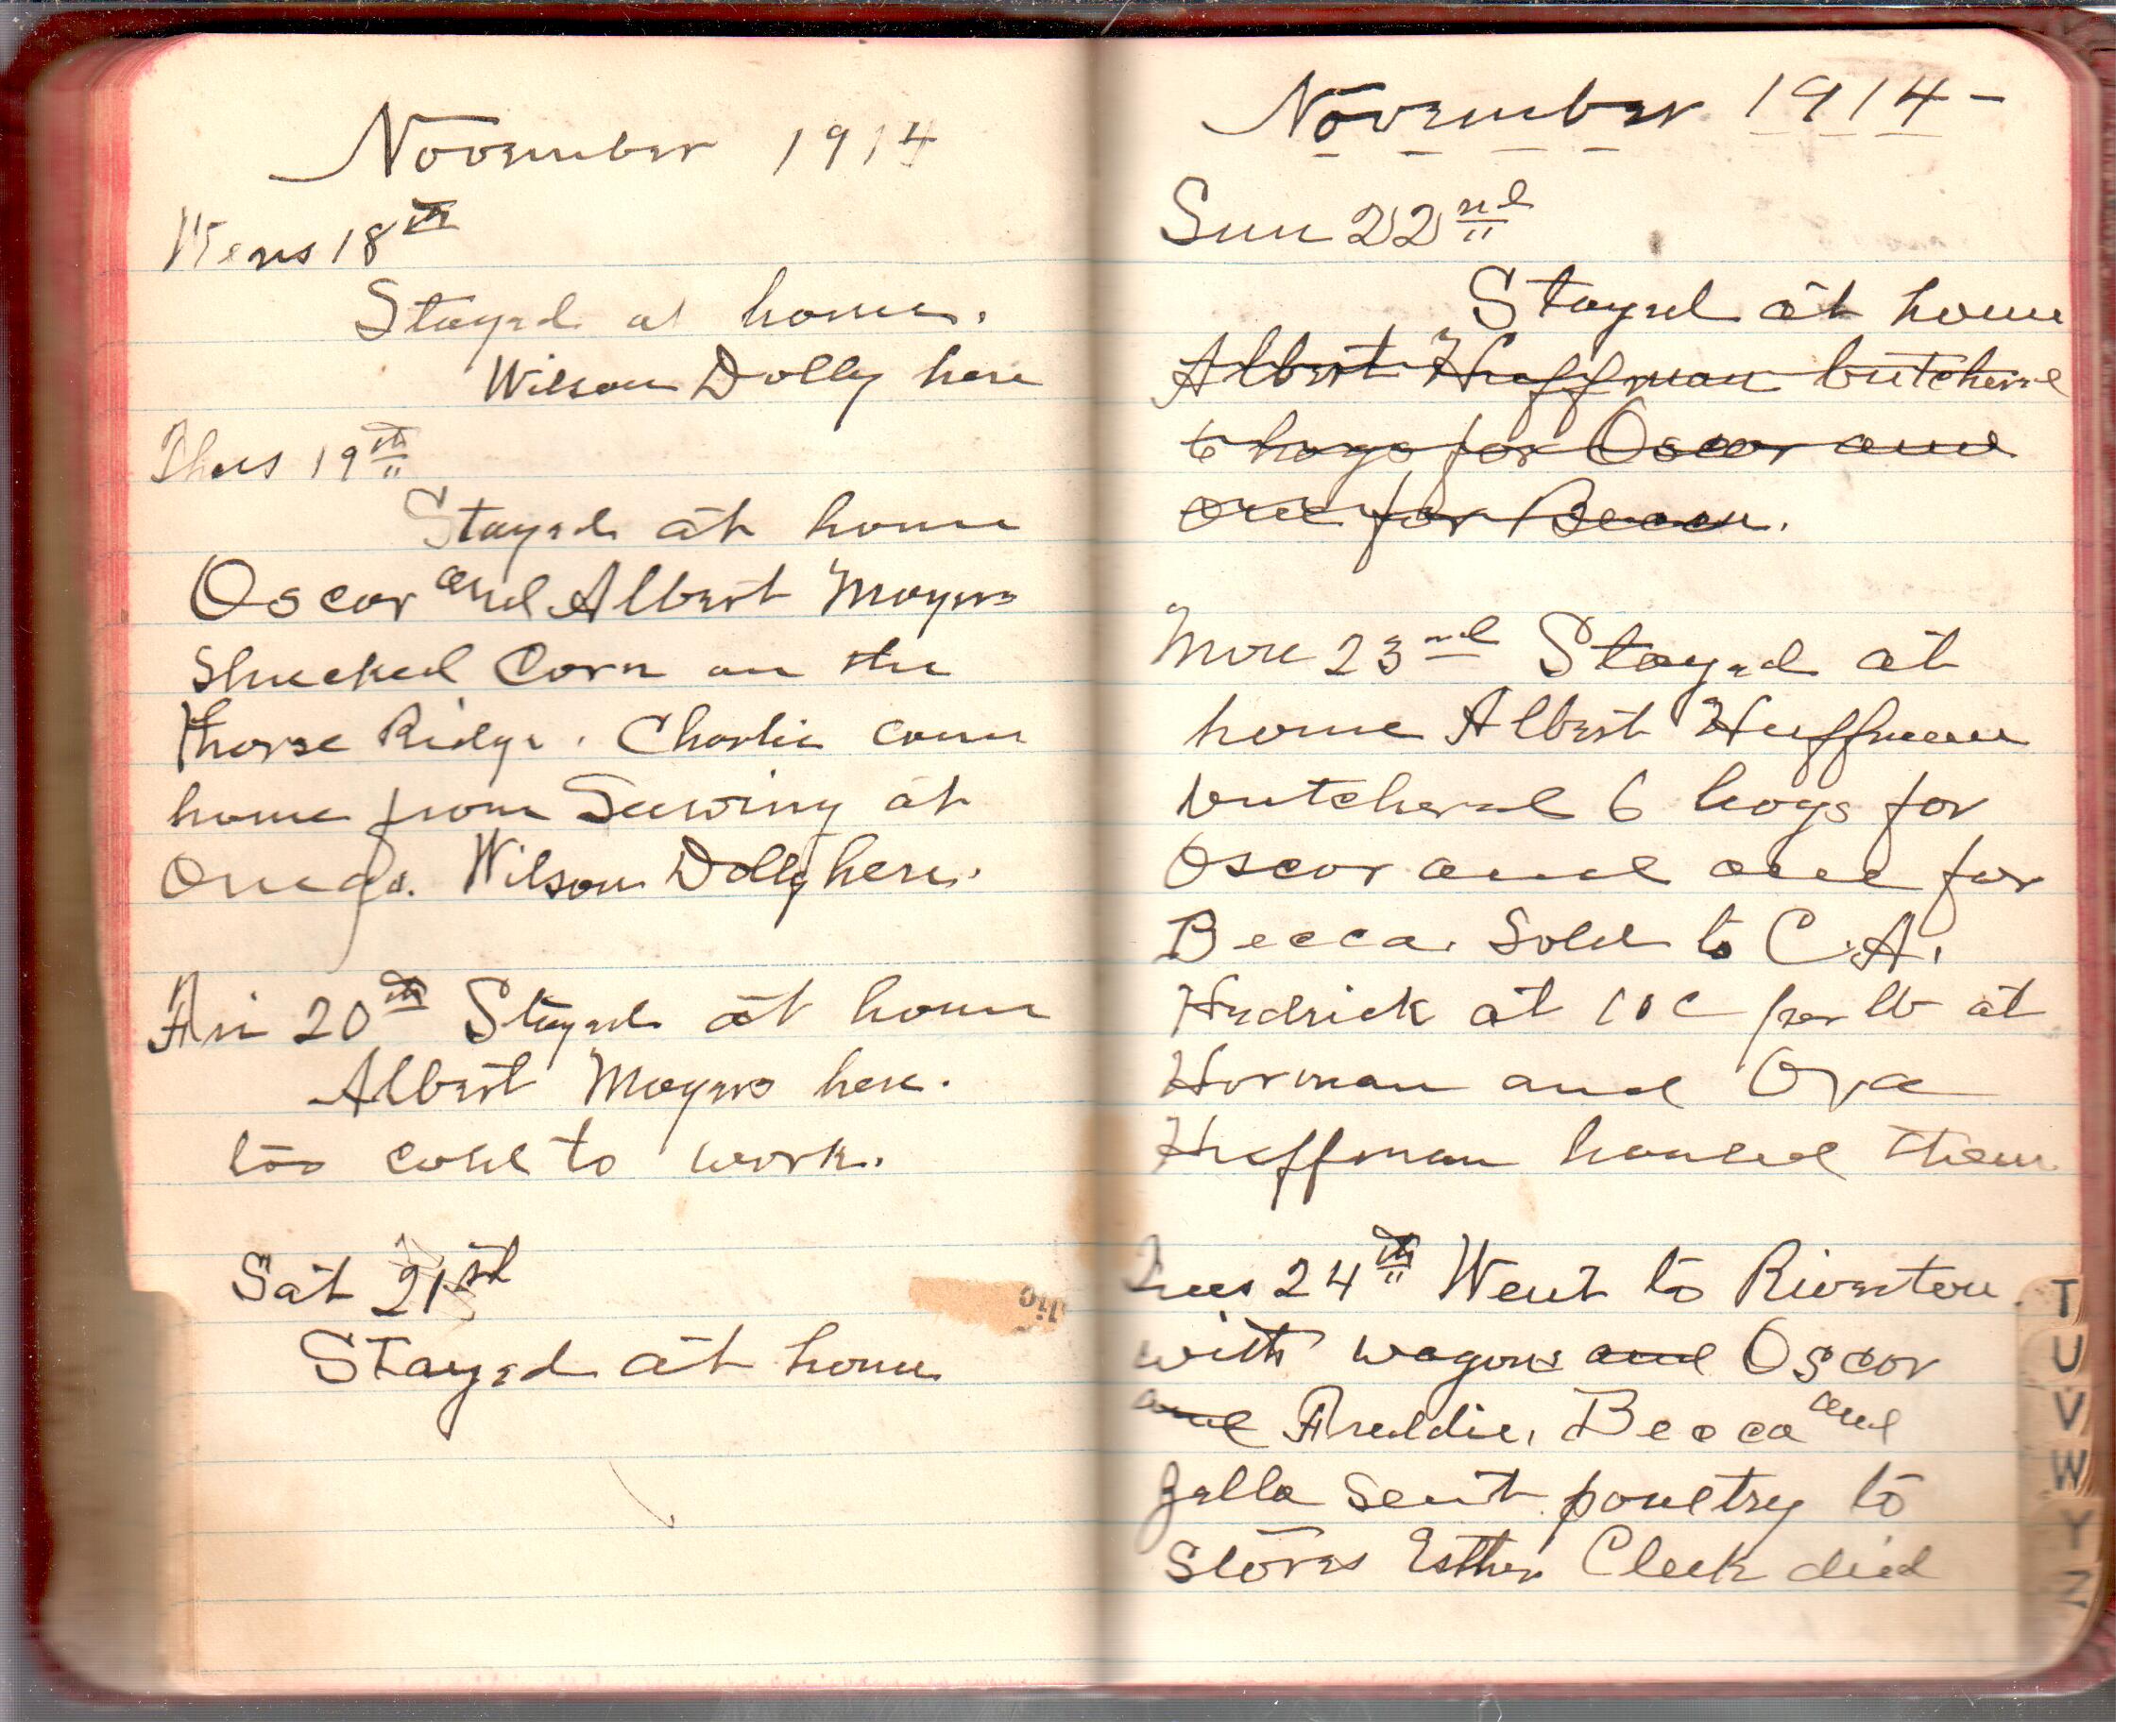 November 1914
Wens 18th
Stayed at home.
Wilson Dolly here
Thurs 19th
Stayed at home
Oscar and Albert Moyers
Shucked Corn on the
horse Ridge. Charlie came
home from Sawing at
Omega. Wilson Dolly here.
Fri 20th Stayed at home
Albert Moyers here.
too cold to work.
Sat 21st
Stayed at home
November 1914 -
Sun 22nd
Stayed at home
Albert Huffman butchered
6 hogs for Oscar and
one for Becca.
Mon 23nd Stayed at
home Albert Huffman
butchered 6 hogs for
Oscar and one for
Becca. Sold to C.A.
Hedrick at 10c per lb at
Horman and Ora
Huffman hauled them
Tues 24th Went to Riverton
with wagon and Oscar
and Freddie. Becca and
Zella sent poultry to
Stores Esther Cleek died
T
U
V
W
Y
Z